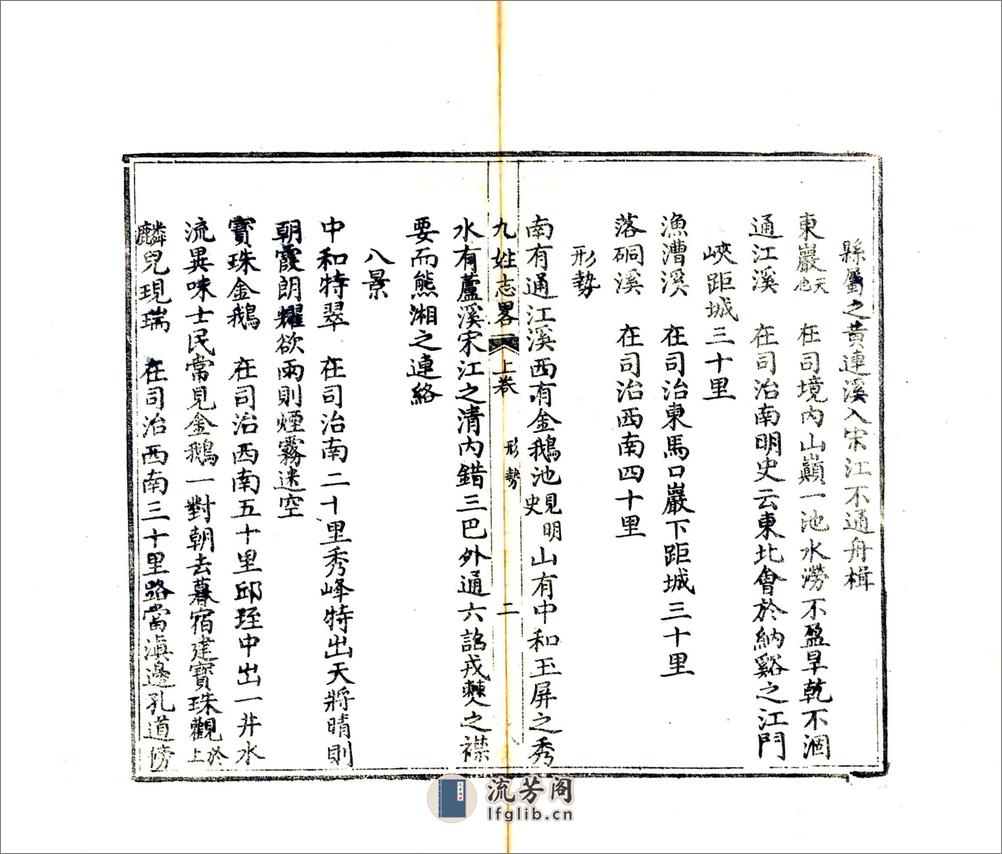 縣屬之黄連溪入宋江不通舟楫
東巖天池 在司境内山巔一池水澇不盈旱乾不涸
通江溪 在司治南明史云東北會於納谿之江門
峽距城三十里
漁漕溪 在司治東馬口巖下距城三十里
落硐溪 在司治西南四十里
形勢
南有通江溪西有金鵝池見明史山有中和玉屏之秀
九姓志畧 上卷 形勢 二
水有蘆溪宋江之清内錯三巴外通六詔戎僰之襟
要而熊湘之連絡
八景
中和特翠 在司治南二十里秀峰特出天將晴則
朝霞朗耀欲雨則煙霧迷空
寶珠金鵝 在司治西南五十里邱垤中出一井水
流異味士民常見金鵝一對朝去暮宿建寶珠觀於上
麟兒現瑞 在司治西南三十里路當滇邊孔道傍
流芳阁
lfglib.cn